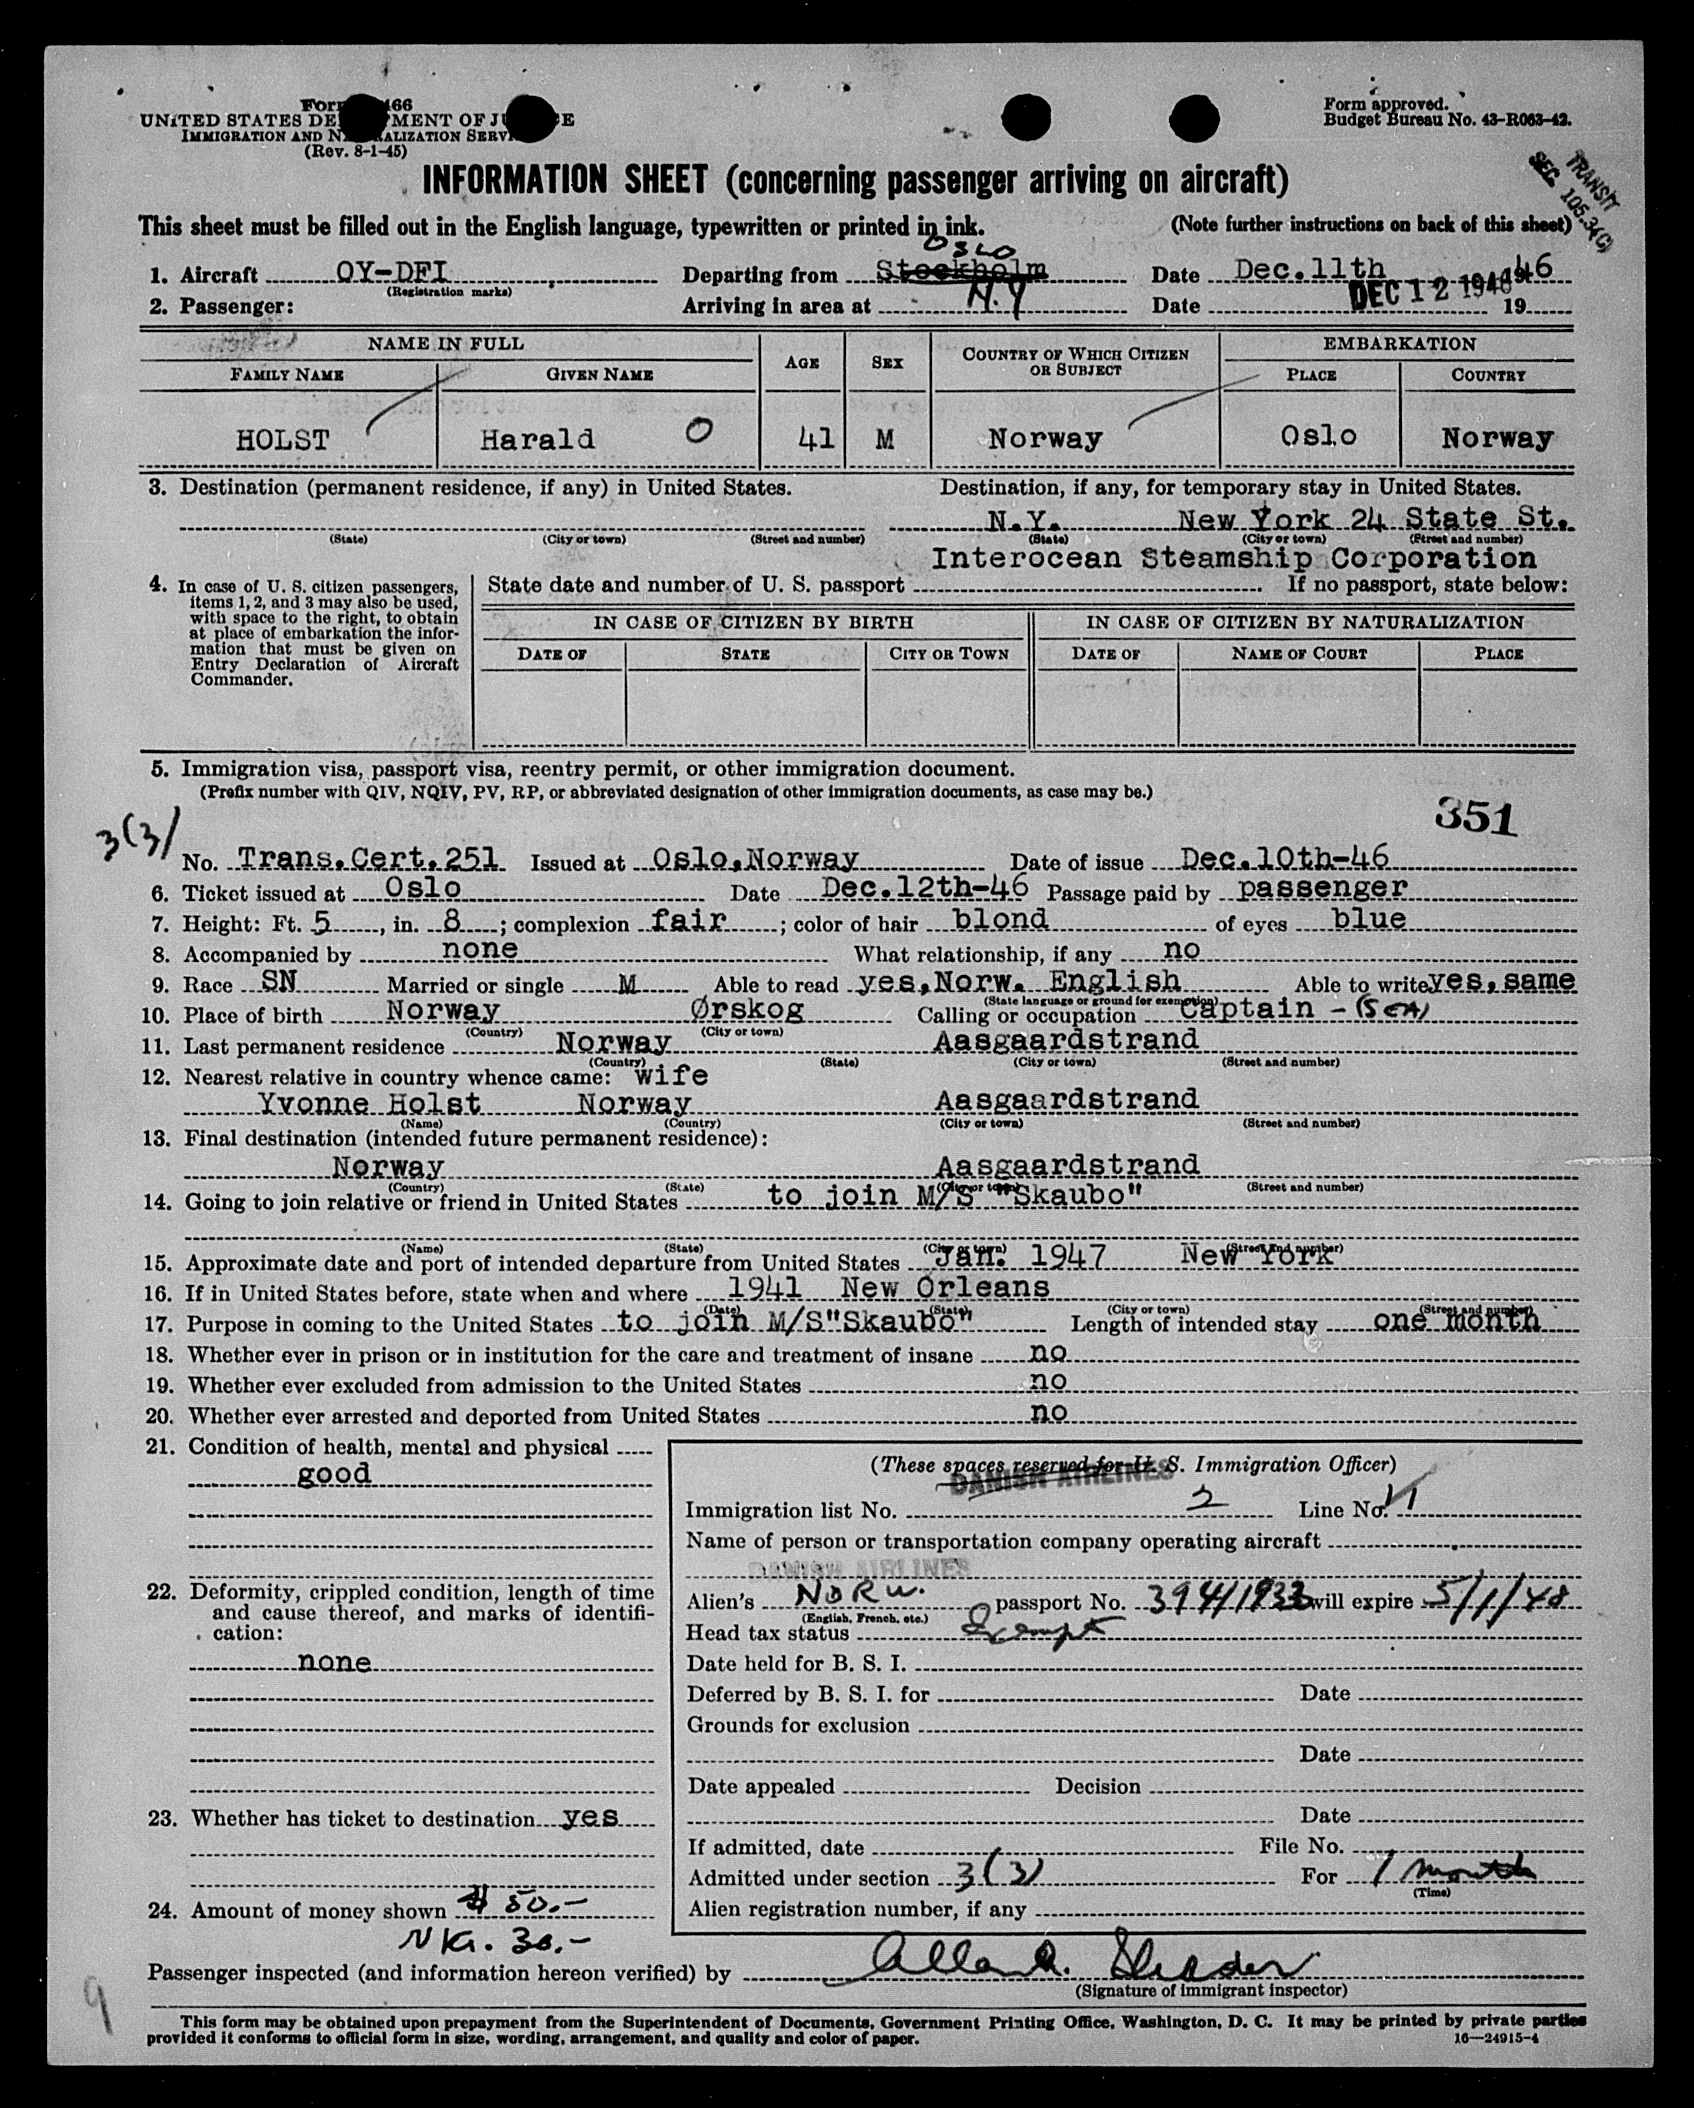 Form 466
UNITED STATES DEPARTMENT OF JUSTICE
IMMIGRATION AND NATURALIZATION SERVICE
(Rev. 8-1-45)
Form approved.
Budget Bureau No. 43-R063-42.
TRANSIT
SEC. 105.3(C)
INFORMATION SHEET (concerning passenger arriving on aircraft)
This sheet must be filled out in the English language, typewritten or printed in ink. (Note further instructions on back of this sheet)
OSLO
1. Aircraft OY-DFI Departing from Stockholm Date Dec.11th 1946
(Registration marks)
2. Passenger: Arriving in area at N.Y Date DEC 12 1946 19
NAME IN FULL AGE SEX COUNTRY OF WHICH CITIZEN OR SUBJECT EMBARKATION
FAMILY NAME GIVEN NAME PLACE COUNTRY
HOLST Harald O 41 M Norway Oslo Norway
3. Destination (permanent residence, if any) in United States. Destination, if any, for temporary stay in United States.
N.Y. New York 24 State St.
(State) (City or town) (Street and number) (State) (City or town) (Street and number)
Interocean Steamship Corporation
4. In case of U. S. citizen passengers, items 1, 2, and 3 may also be used, with space to the right, to obtain at place of embarkation the information that must be given on Entry Declaration of Aircraft Commander.
State date and number of U. S. passport If no passport, state below:
IN CASE OF CITIZEN BY BIRTH IN CASE OF CITIZEN BY NATURALIZATION
DATE OF STATE CITY OR TOWN DATE OF NAME OF COURT PLACE
5. Immigration visa, passport visa, reentry permit, or other immigration document.
(Prefix number with QIV, NQIV, PV, RP, or abbreviated designation of other immigration documents, as case may be.)
351
3(3)
No. Trans.Cert.251 Issued at Oslo,Norway Date of issue Dec.10th-46
6. Ticket issued at Oslo Date Dec.12th-46 Passage paid by passenger
7. Height: Ft. 5, in. 8; complexion fair; color of hair blond of eyes blue
8. Accompanied by none What relationship, if any no
9. Race SN Married or single M Able to read yes,Norw. English Able to write yes, same
(State language or ground for exemption)
10. Place of birth Norway Ørskog Calling or occupation Captain - (SEA)
(Country) (City or town)
11. Last permanent residence Norway Aasgaardstrand
(Country) (State) (City or town) (Street and number)
12. Nearest relative in country whence came: wife
Yvonne Holst Norway Aasgaardstrand
(Name) (Country) (City or town) (Street and number)
13. Final destination (intended future permanent residence):
Norway Aasgaardstrand
(Country) (State) (City or town) (Street and number)
14. Going to join relative or friend in United States to join M/S "Skaubo"
(Name) (State) (City or town) (Street and number)
15. Approximate date and port of intended departure from United States Jan. 1947 New York
16. If in United States before, state when and where 1941 New Orleans
(Date) (State) (City or town) (Street and number)
17. Purpose in coming to the United States to join M/S"Skaubo" Length of intended stay one month
18. Whether ever in prison or in institution for the care and treatment of insane no
19. Whether ever excluded from admission to the United States no
20. Whether ever arrested and deported from United States no
21. Condition of health, mental and physical
good
(These spaces reserved for U. S. Immigration Officer)
DANISH AIRLINES
Immigration list No. 2 Line No. 11
Name of person or transportation company operating aircraft
DANISH AIRLINES
22. Deformity, crippled condition, length of time and cause thereof, and marks of identification:
none
Alien's NORW. passport No. 394/1933 will expire 5/1/48
(English, French, etc.)
Head tax status Exempt
Date held for B. S. I.
Deferred by B. S. I. for Date
Grounds for exclusion
Date
Date appealed Decision
23. Whether has ticket to destination yes
Date
If admitted, date File No.
Admitted under section 3(3) For 1 month
(Time)
24. Amount of money shown $ 50.-
Alien registration number, if any
N Kr. 30.-
Passenger inspected (and information hereon verified) by
(Signature of immigrant inspector)
9
This form may be obtained upon prepayment from the Superintendent of Documents, Government Printing Office, Washington, D. C. It may be printed by private parties
provided it conforms to official form in size, wording, arrangement, and quality and color of paper. 16—24915-4